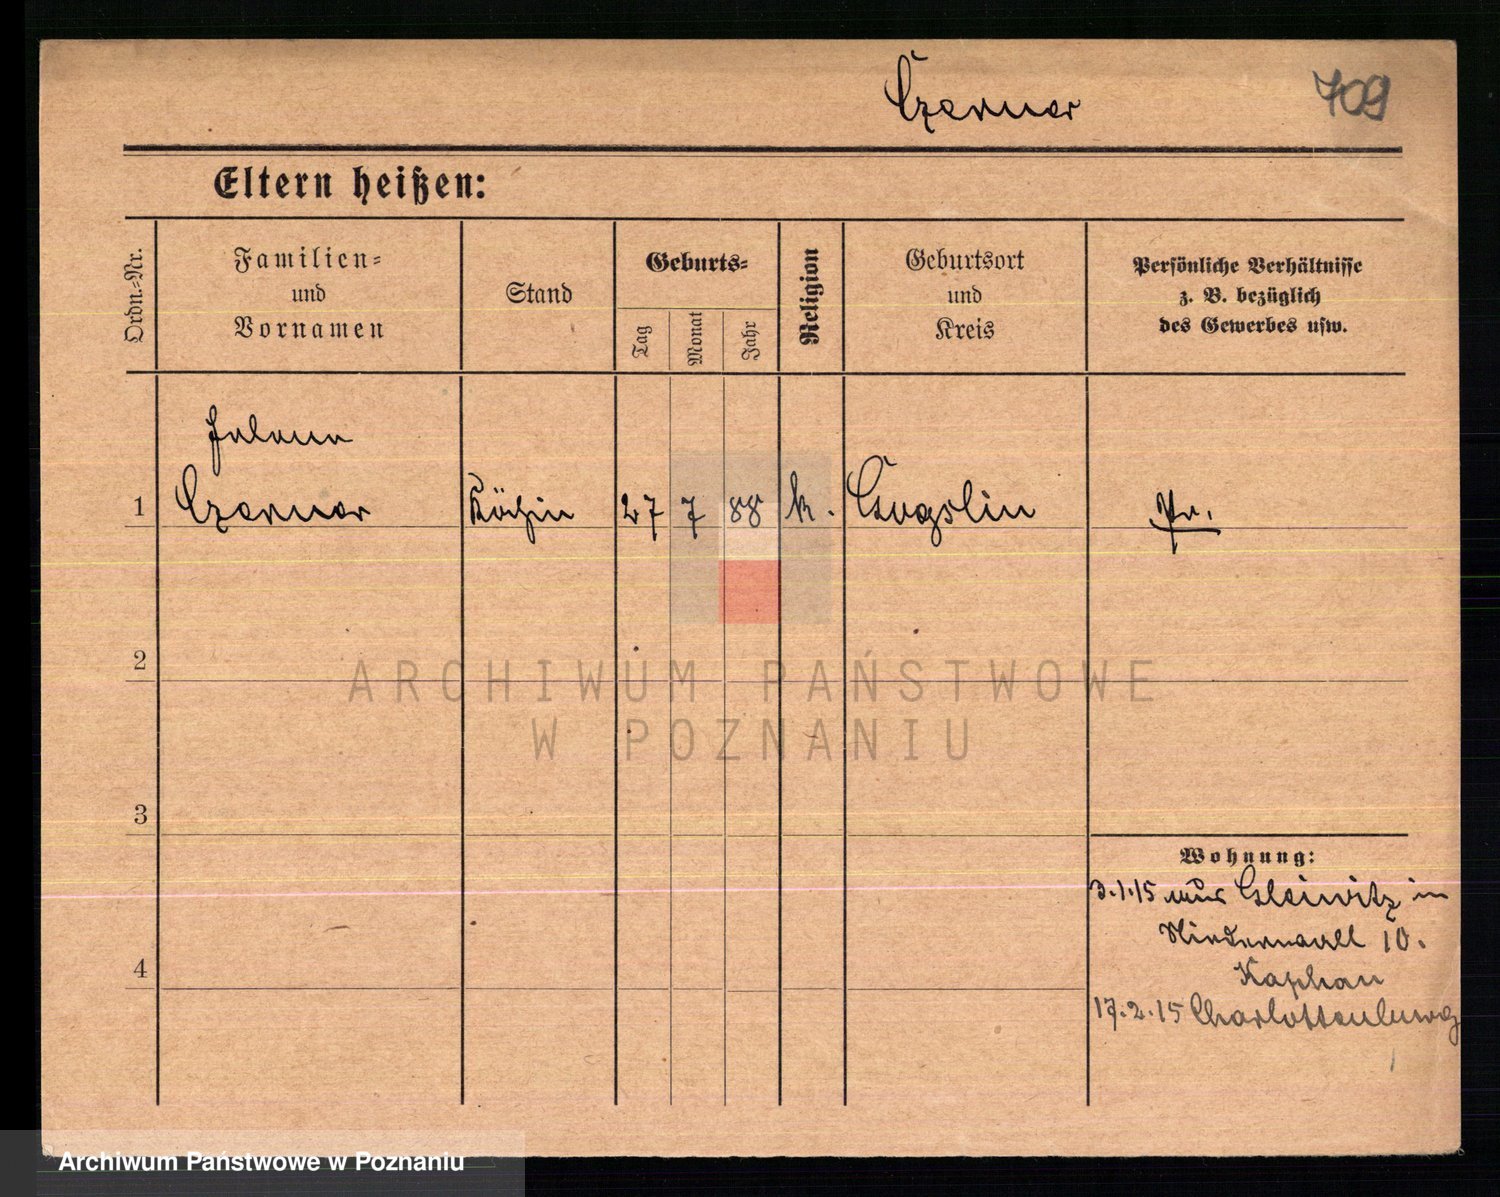 Czerner
709
Eltern heißen:
Ordn.-Nr.
Familien-
und
Vornamen
Stand
Geburts-
Tag
Monat
Jahr
Religion
Geburtsort
und
Kreis
Persönliche Verhältnisse
z. B. bezüglich
des Gewerbes usw.
Helene
1 Czerner Köchin 27 7 88 k. Pr.
2
3
4
Wohnung:
3.1.15 aus Gleiwitz in
Niederwall 10.
Kaphan
17.2.15 Charlottenburg
ARCHIWUM PAŃSTWOWE
W POZNANIU
Archiwum Państwowe w Poznaniu